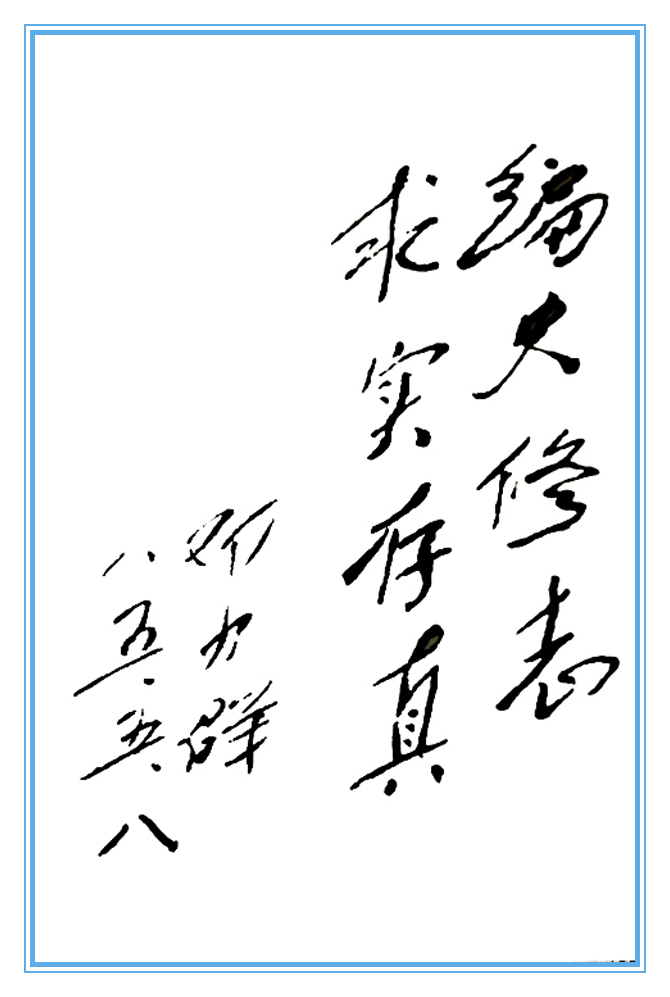 编史修志
求实存真
邓力群
八五·五·八